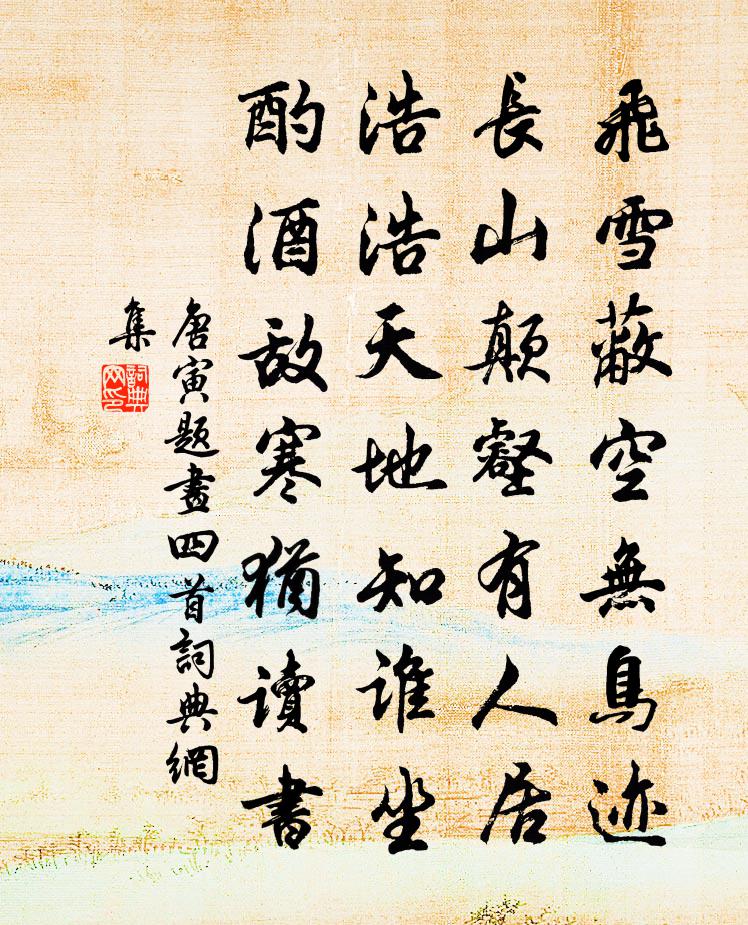 飛雪蔽空無鳥迹
長山顛壑有人居
浩浩天地知誰坐
酌酒敌寒猶讀書
唐寅題畫四首詞典網
集
詞典
网印